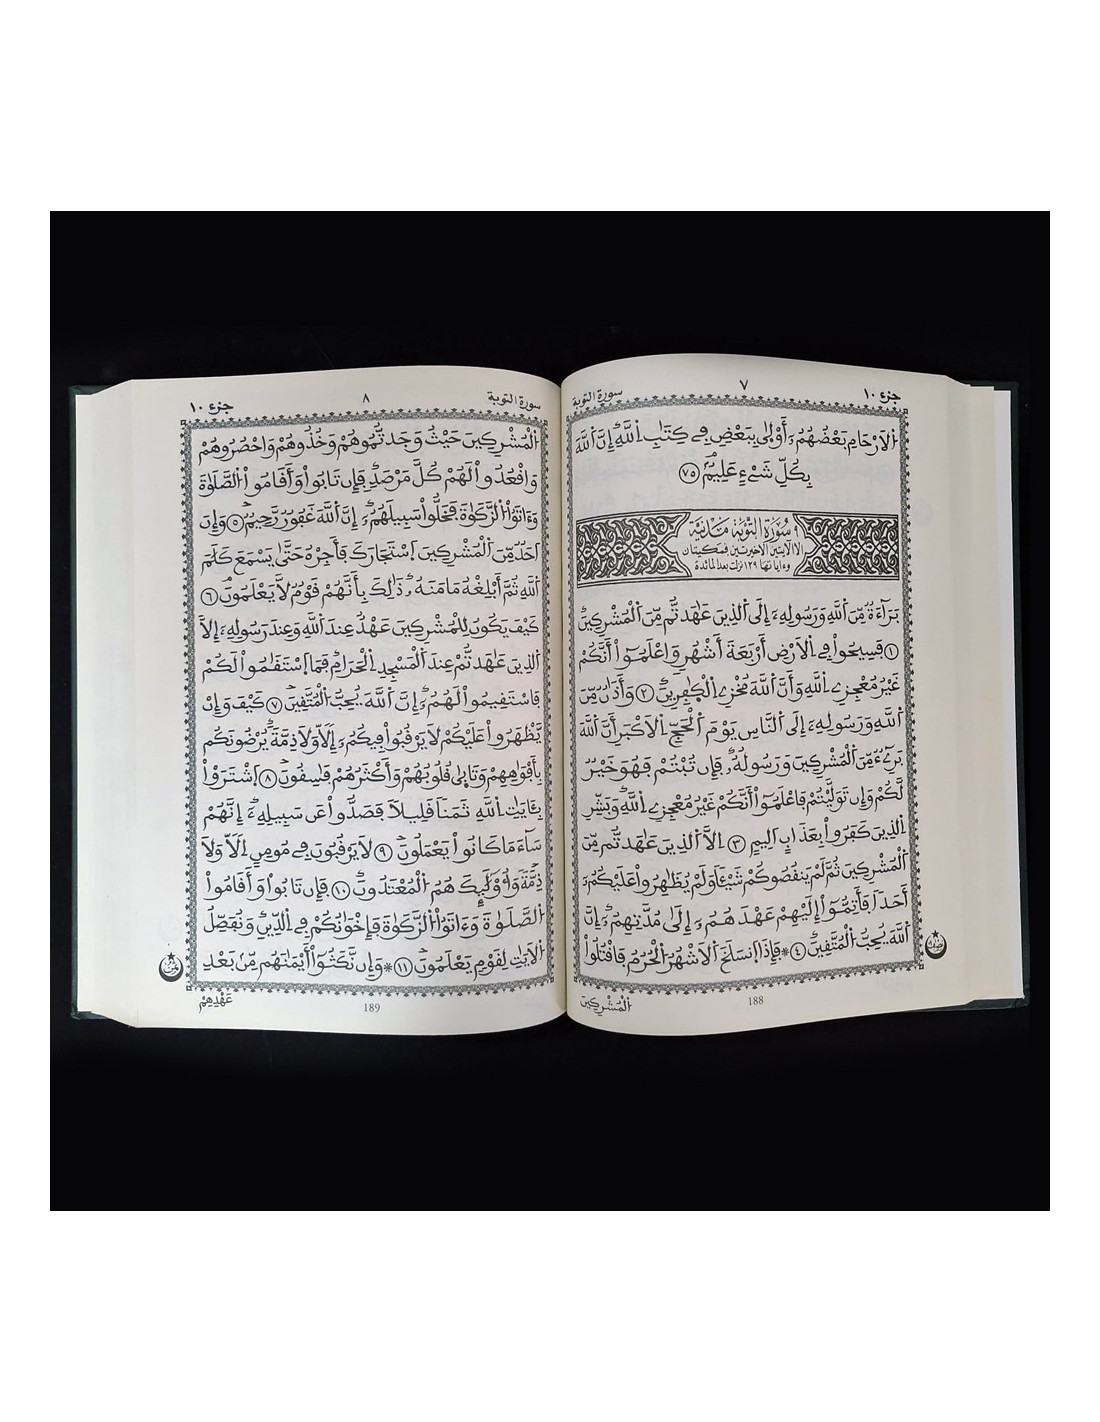 جزء ١٠ ٧ سورة التوبة
اَ۬لَارْحَامِ بَعْضُهُمُۥٓ أَوْلَىٰ بِبَعْضٍ فِے كِتَٰبِ اِ۬للَّهِ إِنَّ اَ۬للَّهَ
بِكُلِّ شَےْءٍ عَلِيمٌ ٧٥
٩ سُورَةُ التَّوْبَةِ مَدَنِيَّة
الا الايتين الاخيرتين فمكيتان
وءاياتها ١٢٩ نزلت بعد المائدة
بَرَآءَةٌ مِّنَ اَ۬للَّهِ وَرَسُولِهِۦٓ إِلَى اَ۬لذِينَ عَٰهَدتُّم مِّنَ اَ۬لْمُشْرِكِينَ
١ فَسِيحُوا۟ فِے اِ۬لَارْضِ أَرْبَعَةَ أَشْهُرٍ وَاعْلَمُوٓا۟ أَنَّكُمْ
غَيْرُ مُعْجِزِے اِ۬للَّهِ وَأَنَّ اَ۬للَّهَ مُخْزِے اِ۬لْكَٰفِرِينَ ٢ وَأَذَٰنٌ مِّنَ
اَ۬للَّهِ وَرَسُولِهِۦٓ إِلَى اَ۬لنَّاسِ يَوْمَ اَ۬لْحَجِّ اِ۬لَاكْبَرِ أَنَّ اَ۬للَّهَ
بَرِےٓءٌ مِّنَ اَ۬لْمُشْرِكِينَ وَرَسُولُهُۥ فَإِن تُبْتُمْ فَهُوَ خَيْرٌ
لَّكُمْ وَإِن تَوَلَّيْتُمْ فَاعْلَمُوٓا۟ أَنَّكُمْ غَيْرُ مُعْجِزِے اِ۬للَّهِ وَبَشِّرِ
اِ۬لذِينَ كَفَرُوا۟ بِعَذَابٍ اَلِيمٍ ٣ اِلَّا اَ۬لذِينَ عَٰهَدتُّم مِّنَ
اَ۬لْمُشْرِكِينَ ثُمَّ لَمْ يَنقُصُوكُمْ شَيْـًٔا وَلَمْ يُظَٰهِرُوا۟ عَلَيْكُمُۥٓ
أَحَدًا فَأَتِمُّوٓا۟ إِلَيْهِمْ عَهْدَهُمُۥٓ إِلَىٰ مُدَّتِهِمُۥٓ إِنَّ
اَ۬للَّهَ يُحِبُّ اُ۬لْمُتَّقِينَ ٤ * فَإِذَا اَ۪نسَلَخَ اَ۬لَاشْهُرُ اُ۬لْحُرُمُ فَاقْتُلُوا۟
اُ۬لْمُشْرِكِينَ
188
سورة التوبة ٨ جزء ١٠
اُ۬لْمُشْرِكِينَ حَيْثُ وَجَدتُّمُوهُمْ وَخُذُوهُمْ وَاحْصُرُوهُمْ
وَاقْعُدُوا۟ لَهُمْ كُلَّ مَرْصَدٍ فَإِن تَابُوا۟ وَأَقَامُوا۟ اُ۬لصَّلَوٰةَ
وَءَاتَوُا۟ اُ۬لزَّكَوٰةَ فَخَلُّوا۟ سَبِيلَهُمُۥٓ إِنَّ اَ۬للَّهَ غَفُورٌ رَّحِيمٌ ٥ وَإِنَ
اَحَدٌ مِّنَ اَ۬لْمُشْرِكِينَ اَ۪سْتَجَارَكَ فَأَجِرْهُ حَتَّىٰ يَسْمَعَ كَلَٰمَ
اَ۬للَّهِ ثُمَّ أَبْلِغْهُ مَامَنَهُۥ ذَٰلِكَ بِأَنَّهُمْ قَوْمٌ لَّا يَعْلَمُونَ ٦
كَيْفَ يَكُونُ لِلْمُشْرِكِينَ عَهْدٌ عِندَ اَ۬للَّهِ وَعِندَ رَسُولِهِۦٓ إِلَّا
اَ۬لذِينَ عَٰهَدتُّمْ عِندَ اَ۬لْمَسْجِدِ اِ۬لْحَرَامِ فَمَا اَ۪سْتَقَٰمُوا۟ لَكُمْ
فَاسْتَقِيمُوا۟ لَهُمُۥٓ إِنَّ اَ۬للَّهَ يُحِبُّ اُ۬لْمُتَّقِينَ ٧ كَيْفَ وَإِنْ
يَّظْهَرُوا۟ عَلَيْكُمْ لَا يَرْقُبُوا۟ فِيكُمُۥٓ إِلًّا وَلَا ذِمَّةً يُرْضُونَكُم
بِأَفْوَٰهِهِمْ وَتَأْبَىٰ قُلُوبُهُمْ وَأَكْثَرُهُمْ فَٰسِقُونَ ٨ اَ۪شْتَرَوْا۟
بِـَٔايَٰتِ اِ۬للَّهِ ثَمَنًا قَلِيلًا فَصَدُّوا۟ عَن سَبِيلِهِۦٓ إِنَّهُمْ
سَآءَ مَا كَانُوا۟ يَعْمَلُونَ ٩ لَا يَرْقُبُونَ فِے مُومِنٍ اِلًّا وَلَا
ذِمَّةً وَأُو۟لَٰٓئِكَ هُمُ اُ۬لْمُعْتَدُونَ ١٠ فَإِن تَابُوا۟ وَأَقَامُوا۟
اُ۬لصَّلَوٰةَ وَءَاتَوُا۟ اُ۬لزَّكَوٰةَ فَإِخْوَٰنُكُمْ فِے اِ۬لدِّينِ وَنُفَصِّلُ
اُ۬لَايَٰتِ لِقَوْمٍ يَعْلَمُونَ ١١ * وَإِن نَّكَثُوٓا۟ أَيْمَٰنَهُم مِّنۢ بَعْدِ
عَهْدِهِمْ
189